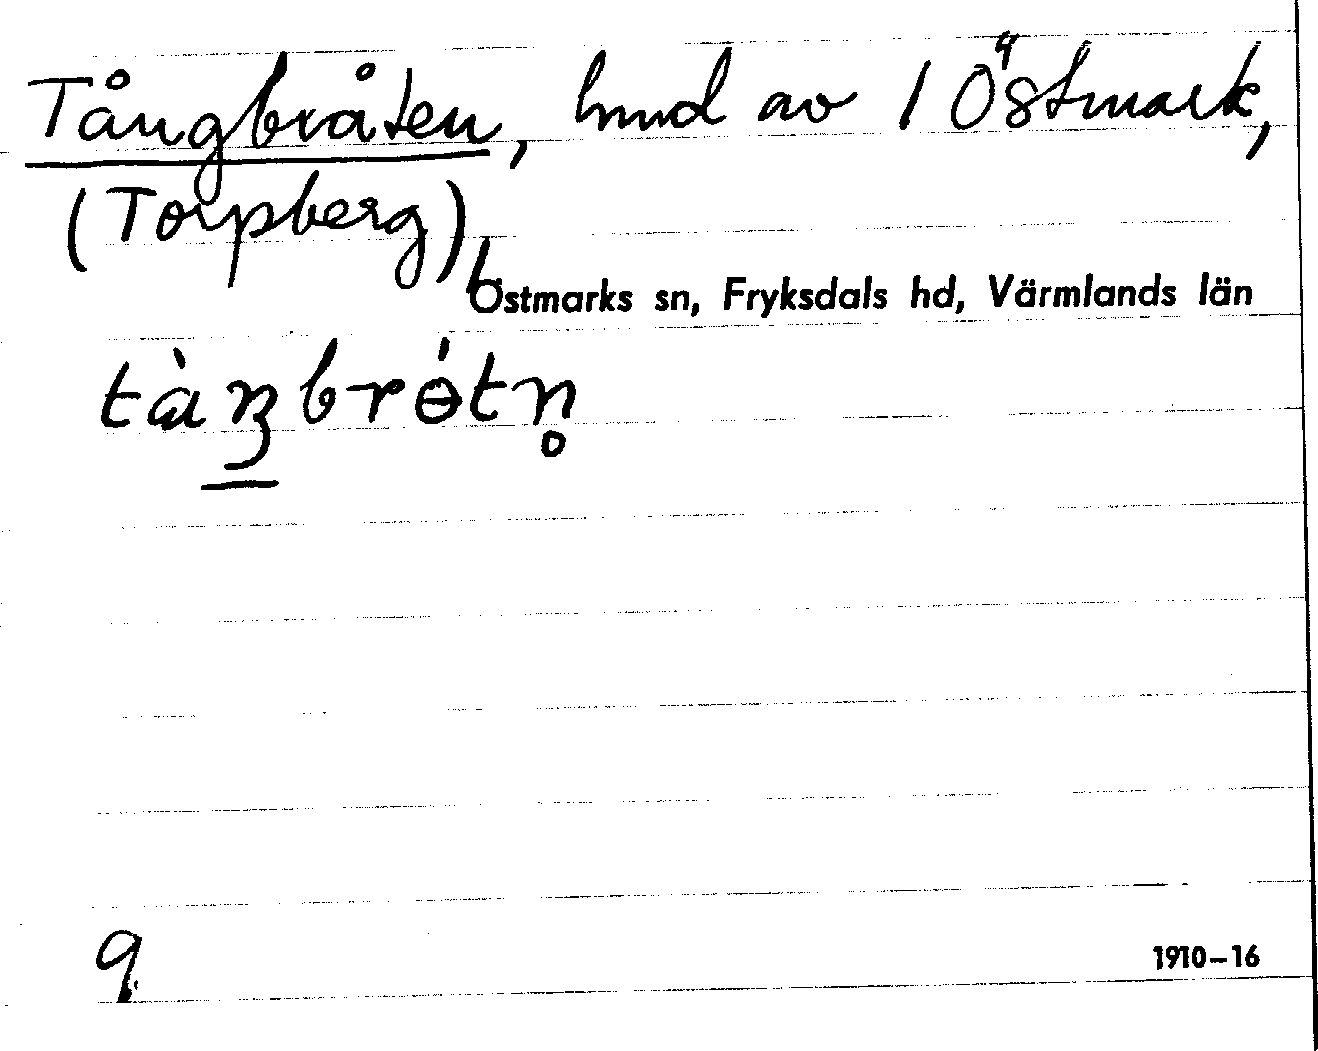 Tångbråten, hmd av 1 Östmark,
(Torpberg)
Östmarks sn, Fryksdals hd, Värmlands län
9
1910–16